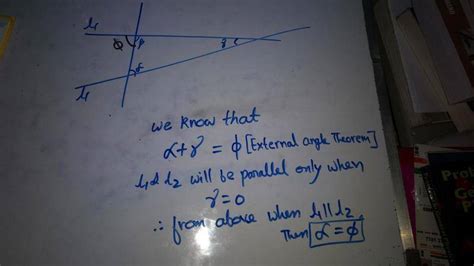 l₁
ϕ
β
γ
l₁
α
we know that
α+γ = ϕ [External angle Theorem]
l₁ & l₂ will be parallel only when
γ=0
∴ from above when l₁ || l₂
Then α = ϕ